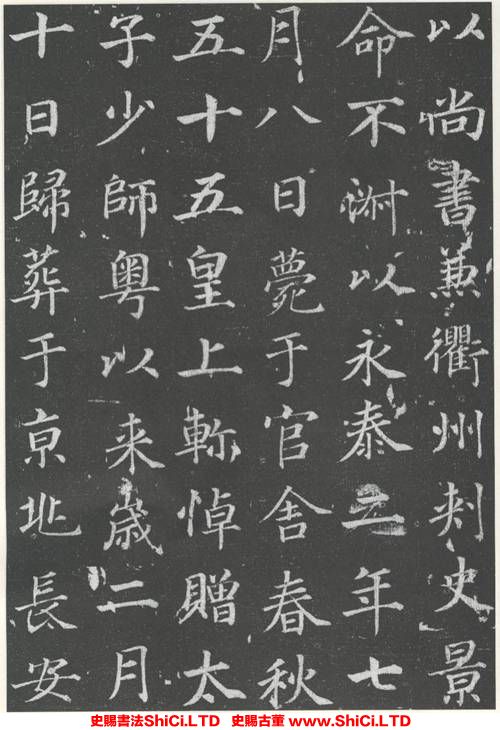 以尚書兼衢州刺史景
命不淑以永泰二年七
月八日薨于官舍春秋
五十五皇上軫悼贈太
子少師粤以来歳二月
十日歸葬于亰兆長安
史賜書法ShiCi.LTD 史賜古董 www.ShiCi.LTD